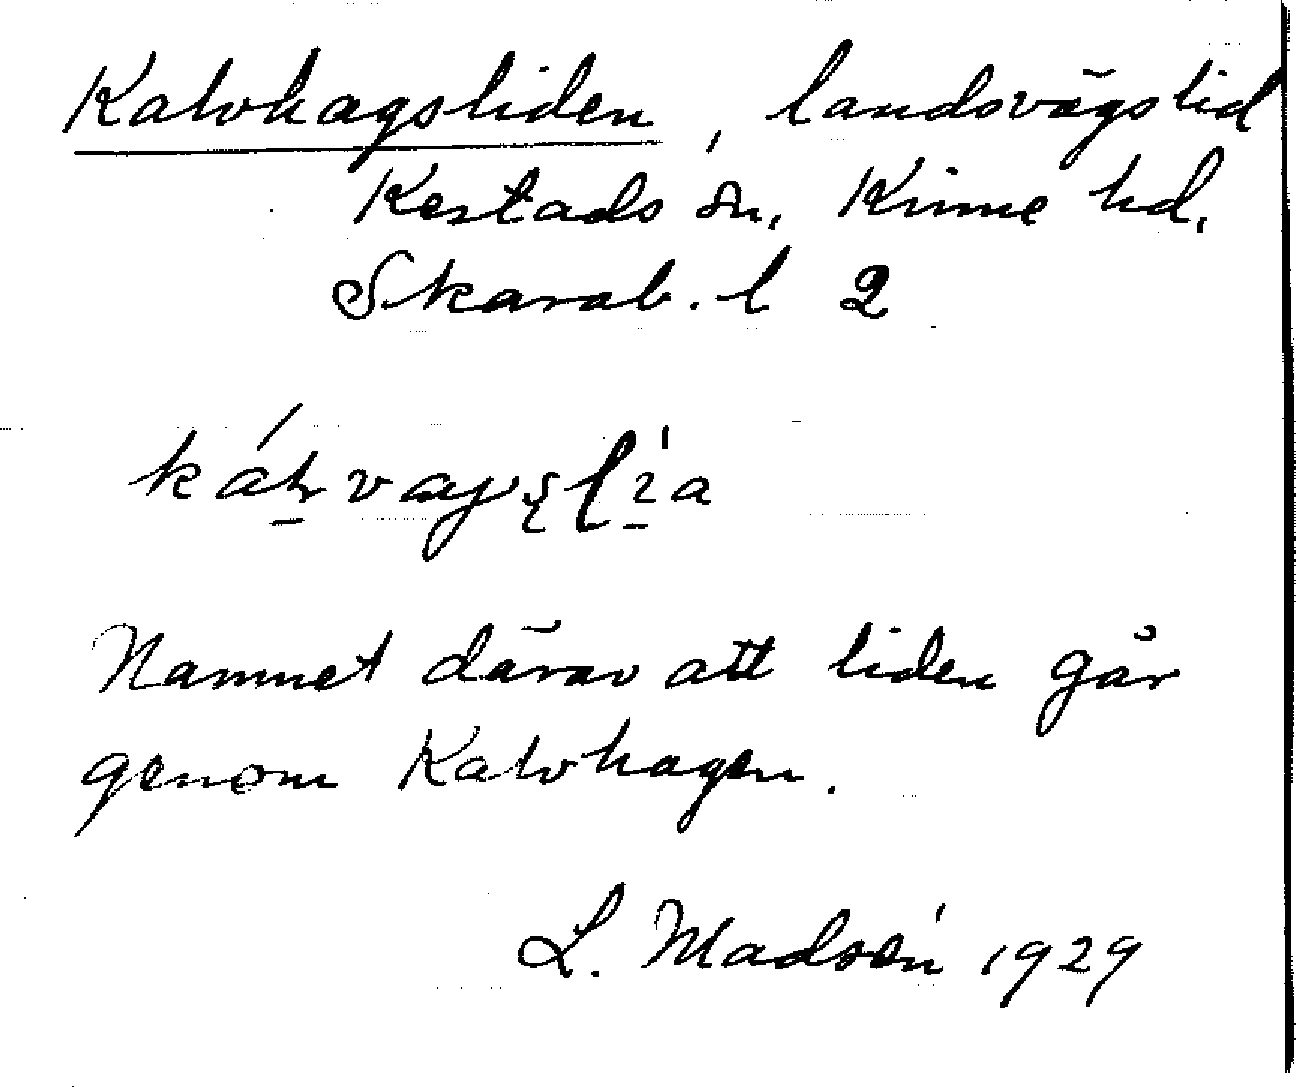 Kalvhagsliden, landsvägslid
Kestads sn, Kinne hd,
Skarab. l 2
Namnet därav att liden går
genom Kalvhagen.
L. Madsén 1929